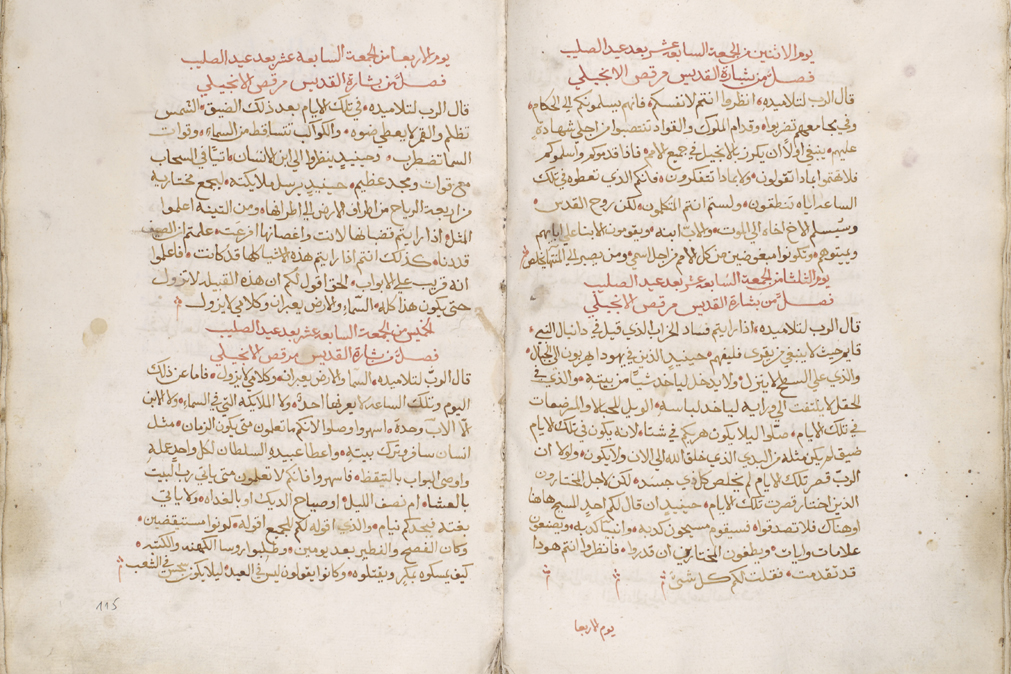 يوم الاثنين من الجمعة السابعة عشر بعد عيد الصليب
فصل من بشارة القديس مرقص الانجيلي
قال الرب لتلاميذه انظروا انتم لانفسكم فانهم يسلمونكم الى الحكام
وفي مجامعهم تضربوا وقدام الملوك والقواد تنتصبوا من اجلي شهادة
عليهم ينبغي اولا ان يكرز بالانجيل في جميع الامم فاذا قدموكم واسلموكم
فلا تهتموا بماذا تقولون ولا بماذا تتفكرون فلكم الذي تعطوه في تلك
الساعه اياه تنطقون ولستم انتم المتكلمون لكن روح القدس
وسيسلم الاخ اخاه الى الموت والاب ابنه ويقومون الابنا على ابايهم
ويميتوهم وتكونوا مبغوضين من كل الامم من اجل اسمي ومن يصبر الى المنتها يخلص
يوم الثلثا من الجمعة السابعة عشر بعد عيد الصليب
فصل من بشارة القديس مرقص الانجيلي
قال الرب لتلاميذه اذا رايتم فساد الخراب الذي قيل في دانيال النبي
قايم حيث لا ينبغي من يقرى فليفهم حينيذ الذين في يهودا يهربون الى الجبال
والذي على السطح لا ينزل ولا يدخل لياخد شيا من بيته والذي في
الحقل لا يلتفت الى ورايه لياخد لباسه الويل للحبالا والمرضعات
في تلك الايام صلوا ليلا يكون هربكم في شتا لانه يكون في تلك الايام
ضيق لم يكن مثله من البدي الذي خلق الله الى الان ولا يكون ولولا ان
الرب قصر تلك الايام لم يخلص كل ذي جسد لكن لاجل المختارين
الذين اختار قصرت تلك الايام حينيذ ان قال لكم احد المسيح هاهنا
او هناك فلا تصدقوا فسيقوم مسيحون كدبه وانبيا كدبه ويصنعون
علامات وايات ويطغون المختارين ان قدروا فانظروا انتم هودا
قد تقدمت فقلت لكم كل شي
يوم الاربعا
يوم الاربعا من الجمعة السابعة عشر بعد عيد الصليب
فصل من بشارة القديس مرقص الانجيلي
قال الرب لتلاميذه في تلك الايام بعد ذلك الضيق الشمس
تظلم والقمر لا يعطي ضوه والكواكب تتساقط من السماء وقوات
السما تضطرب وحينيذ ينظروا الى ابن الانسان ماتيا في السحاب
مع قوات ومجد عظيم حينيذ يرسل ملايكته ليجمع مختاريه
من اربعة الرياح من اطراف الارض الى اطرافها ومن التينه اعلموا
المثل اذا رايتم قضبانها لانت واغصانها افرعت علمتم ان الصيف
قد دنا كذلك انتم اذا رايتم هذه الاشيا كلها قد كانت فاعلموا
انه قريب على الابواب الحق اقول لكم ان هذه القبيله لا تزول
حتى يكون هذا كله السماء والارض يعبران وكلامي لا يزول
الخميس من الجمعة السابعة عشر بعد عيد الصليب
فصل من بشارة القديس مرقص الانجيلي
قال الرب لتلاميذه السما والارض يعبران وكلامي لا يزول فاما عن ذلك
اليوم وتلك الساعه لا يعرفها احد ولا الملايكة التي في السماء ولا الابن
الا الاب وحده اسهروا وصلوا لانكم ما تعلمون متى يكون الزمان مثل
انسان سافر وترك بيته واعطا عبيده السلطان لكل واحد عمله
واوصى البواب بالتيقظ فاسهروا فانكم لا تعلمون متى ياتي رب البيت
بالعشا ام نصف الليل او صياح الديك او بالغداه ولا ياتي
بغتة فيجدكم نيام والذي اقوله لكم للجمع اقوله كونوا مستيقضين
وكان الفصح والفطير بعد يومين وطلبوا روسا الكهنه والكتبه
كيف يمسكوه بمكر ويقتلوه وكانوا يقولون ليس في العيد ليلا يكون سجس في الشعب
115